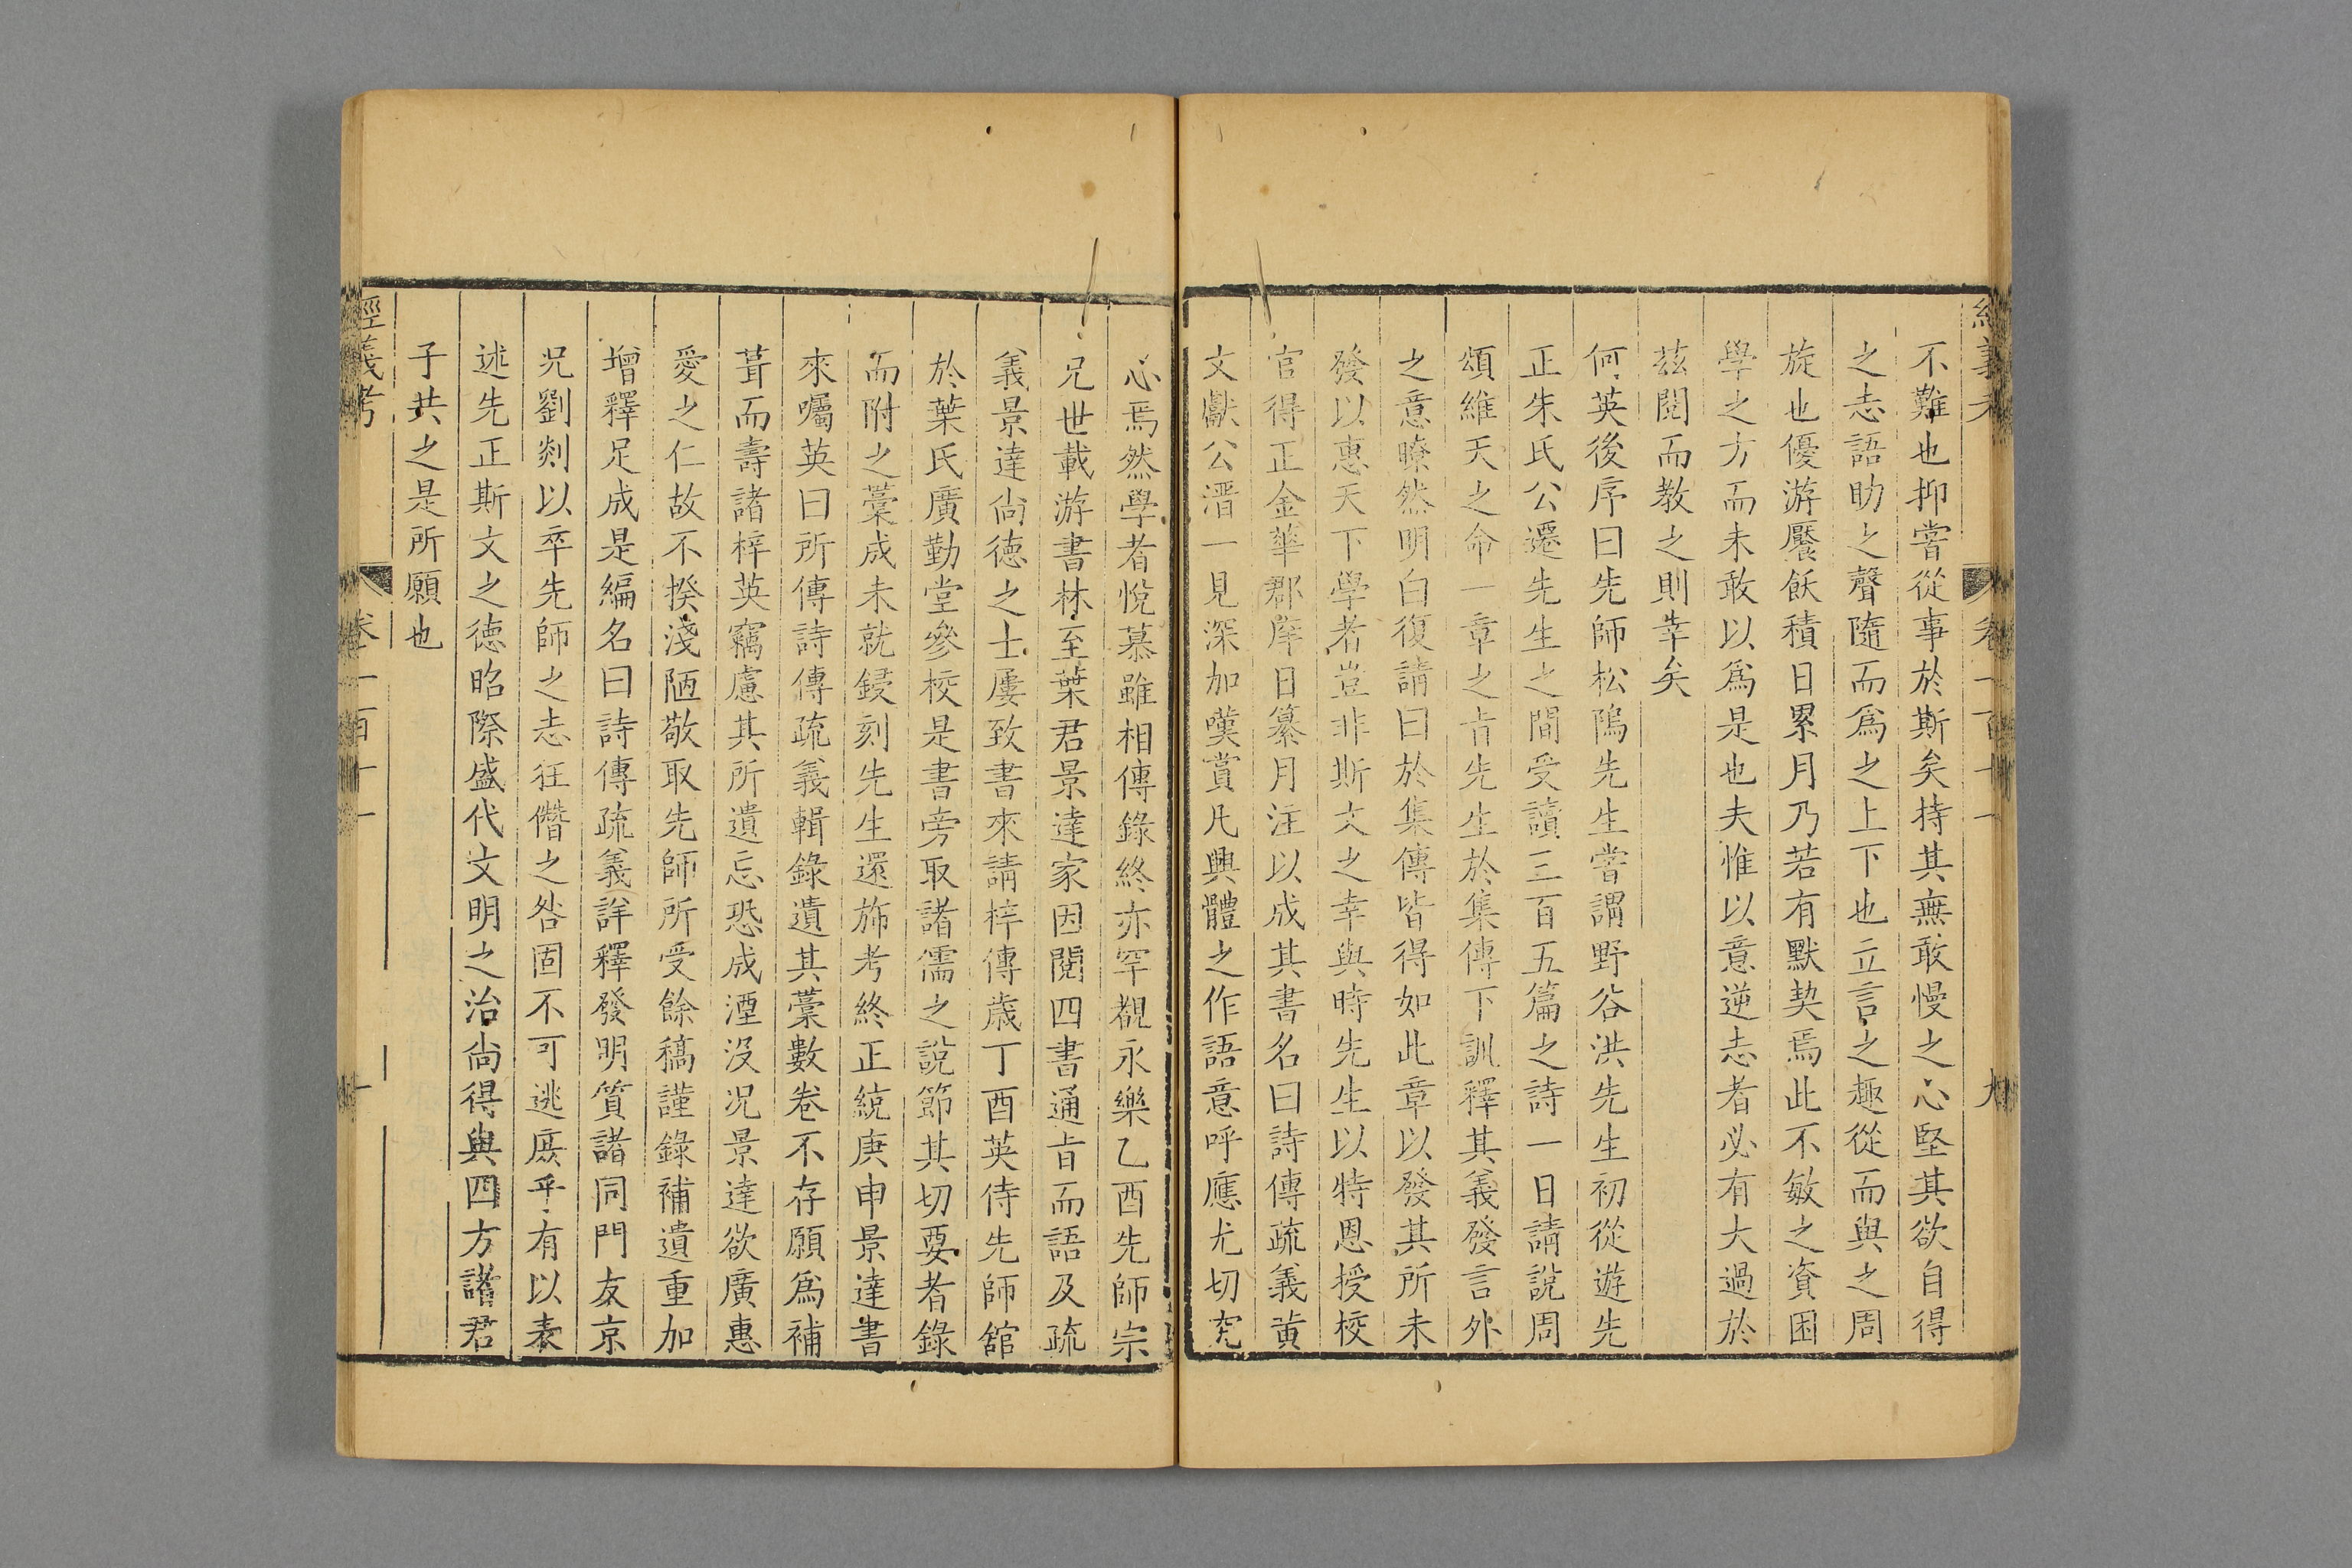 經義考 卷一百十一 九
不難也抑嘗從事於斯矣持其無敢慢之心堅其欲自得
之志語助之聲隨而爲之上下也立言之趣從而與之周
旋也優游饜飫積日累月乃若有默契焉此不敏之資困
學之方而未敢以爲是也夫惟以意逆志者必有大過於
茲閱而教之則幸矣
何英後序曰先師松隖先生嘗謂野谷洪先生初從遊先
正朱氏公遷先生之間受讀三百五篇之詩一日請說周
頌維天之命一章之旨先生於集傳下訓釋其義發言外
之意瞭然明白復請曰於集傳皆得如此章以發其所未
發以惠天下學者豈非斯文之幸與時先生以特恩授校
官得正金華郡庠日纂月注以成其書名曰詩傳疏義黄
文獻公溍一見深加嘆賞凡興體之作語意呼應尤切究
心焉然學者悅慕雖相傳錄終亦罕覩永樂乙酉先師宗
兄世載游書林至葉君景達家因閱四書通旨而語及疏
義景達尚德之士屢致書來請梓傳歲丁酉英侍先師舘
於葉氏廣勤堂參校是書旁取諸儒之說節其切要者錄
而附之藁成未就鋟刻先生還旆考終正統庚申景達書
來囑英曰所傳詩傳疏義輯錄遺其藁數卷不存願爲補
葺而壽諸梓英竊慮其所遺忘恐成湮沒況景達欲廣惠
愛之仁故不揆淺陋敬取先師所受餘稿謹錄補遺重加
增釋足成是編名曰詩傳疏義詳釋發明質諸同門友京
兆劉剡以卒先師之志狂僭之咎固不可逃庶乎有以表
述先正斯文之德昭際盛代文明之治尚得與四方諸君
子共之是所願也
經義考 卷一百十一 十